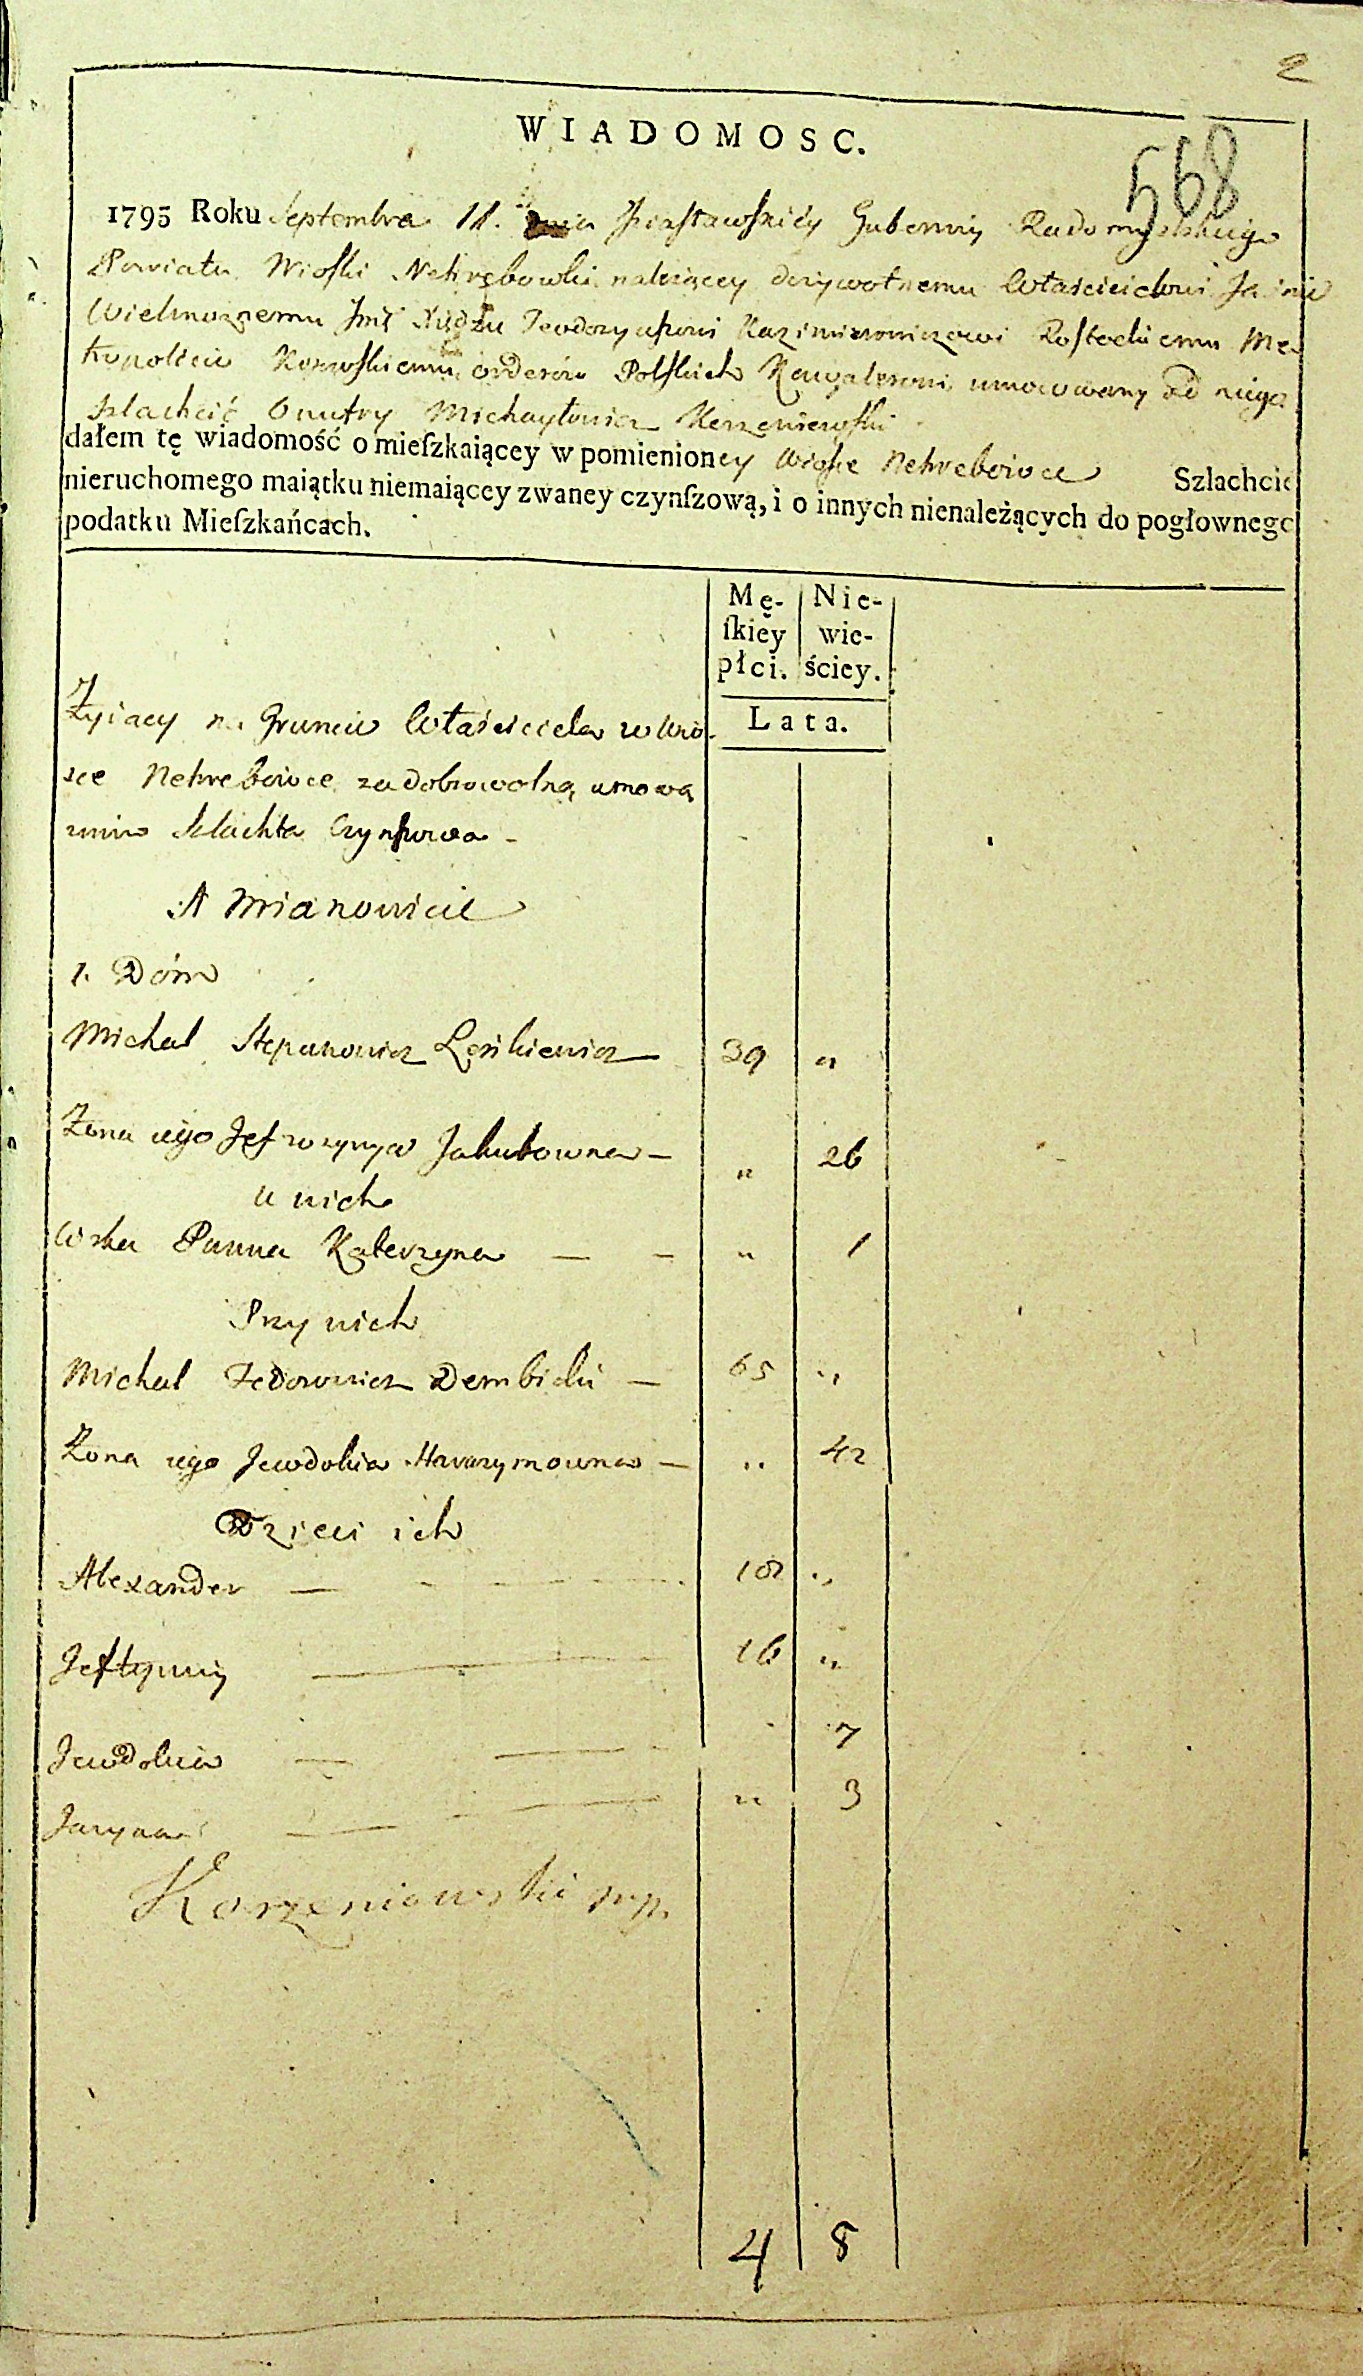 2
WIADOMOSC.
568
1795 Roku Septembra 11. dnia Iziasławskiey Gubernij Radomyslskiego
Powiatu Wioski Nehrębowki należącey dożywotnemu Własicicielowi Jasnie
Wielmożnemu Jmć Xiędzu Teodozyuszowi Kazimirowiczowi Rostockiemu Me
tropolicie Kijowskiemu orderów Polskich Kawalerowi, umocowany od niego
szlachcić Onufry Michayłowicz Korzeniewski
dałem tę wiadomość o mieſzkaiącey w pomienioney Wiosce Nehrebowce Szlachcie
nieruchomego maiątku niemaiącey zwaney czynſzową, i o innych nienależących do pogłownego
podatku Mieſzkańcach.
Mę- Nie-
ſkiey wie-
płci. ściey.
Lata.
Żyiący na Gruncie Własciciela w Wio-
sce Nehrebowce za dobrowolną umową
Szlachta Czynszowa -
A Mianowicie
1. Dóm
Michał Stepanowicz Leśkiewicz 39 "
Żona iego Jefrozynya Jakubowna — " 26
u nich
Córka Panna Katerzyna — — " 1
Przy nich
Michał Fedorowicz Dembicki — 65 "
Żona iego Jewdokia Harasymowna — " 42
Dzieci ich
Alexander — 18 "
Jeftymij — 16 "
Jewdokia — — 7
Jaryna — — " 3
Korzeniowski mp.
4 8